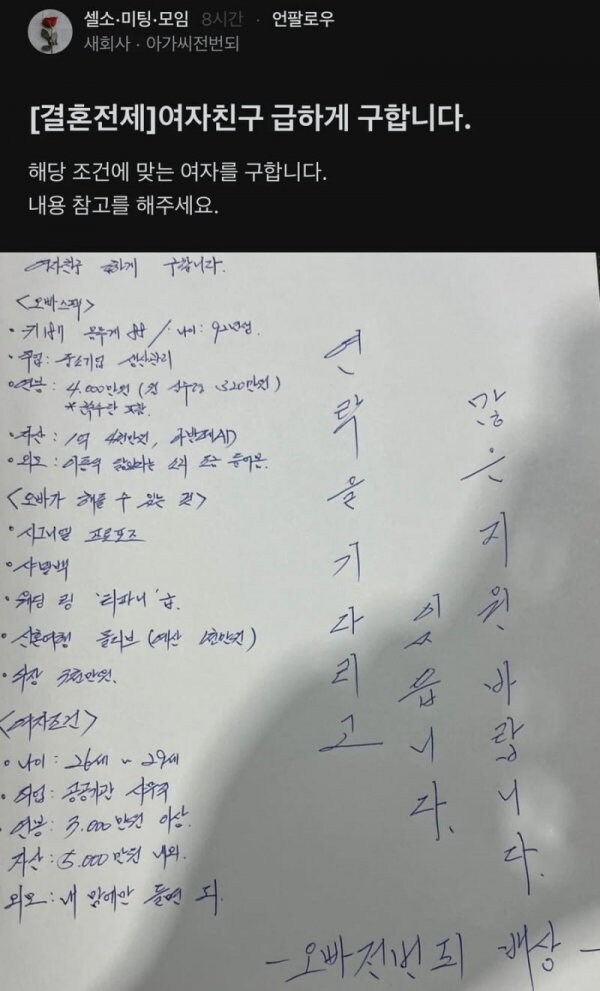 셀소·미팅·모임 8시간 · 언팔로우
새회사 · 아가씨전번되
[결혼전제]여자친구 급하게 구합니다.
해당 조건에 맞는 여자를 구합니다.
내용 참고를 해주세요.
여자친구 급하게 구합니다.
<오빠스펙>
• 키 몸무게 / 나이 :
• 직업 : 중소기업 생산관리
• 연봉 : 4,000만원 (월 실수령 320만원)
* 특수관 포함.
• 자산 : 1억
• 외모 : 소리 들어봄.
<오빠가 해줄 수 있는 것>
• 시그니엘 프로포즈
• 샤넬백
• 웨딩 링 '티파니' 급.
• 신혼여행 몰디브 (예산 1천만원)
<여자조건>
• 나이 : 26세 ~ 29세
• 직업 : 공공기관 사무직
• 연봉 : 3,000만원 이상.
자산 : 5,000만원 내외.
외모 : 내 맘에만 들면 돼.
연락을기다리고
있읍니다.
많은지원바랍니다.
- 오빠전번되 배상 -